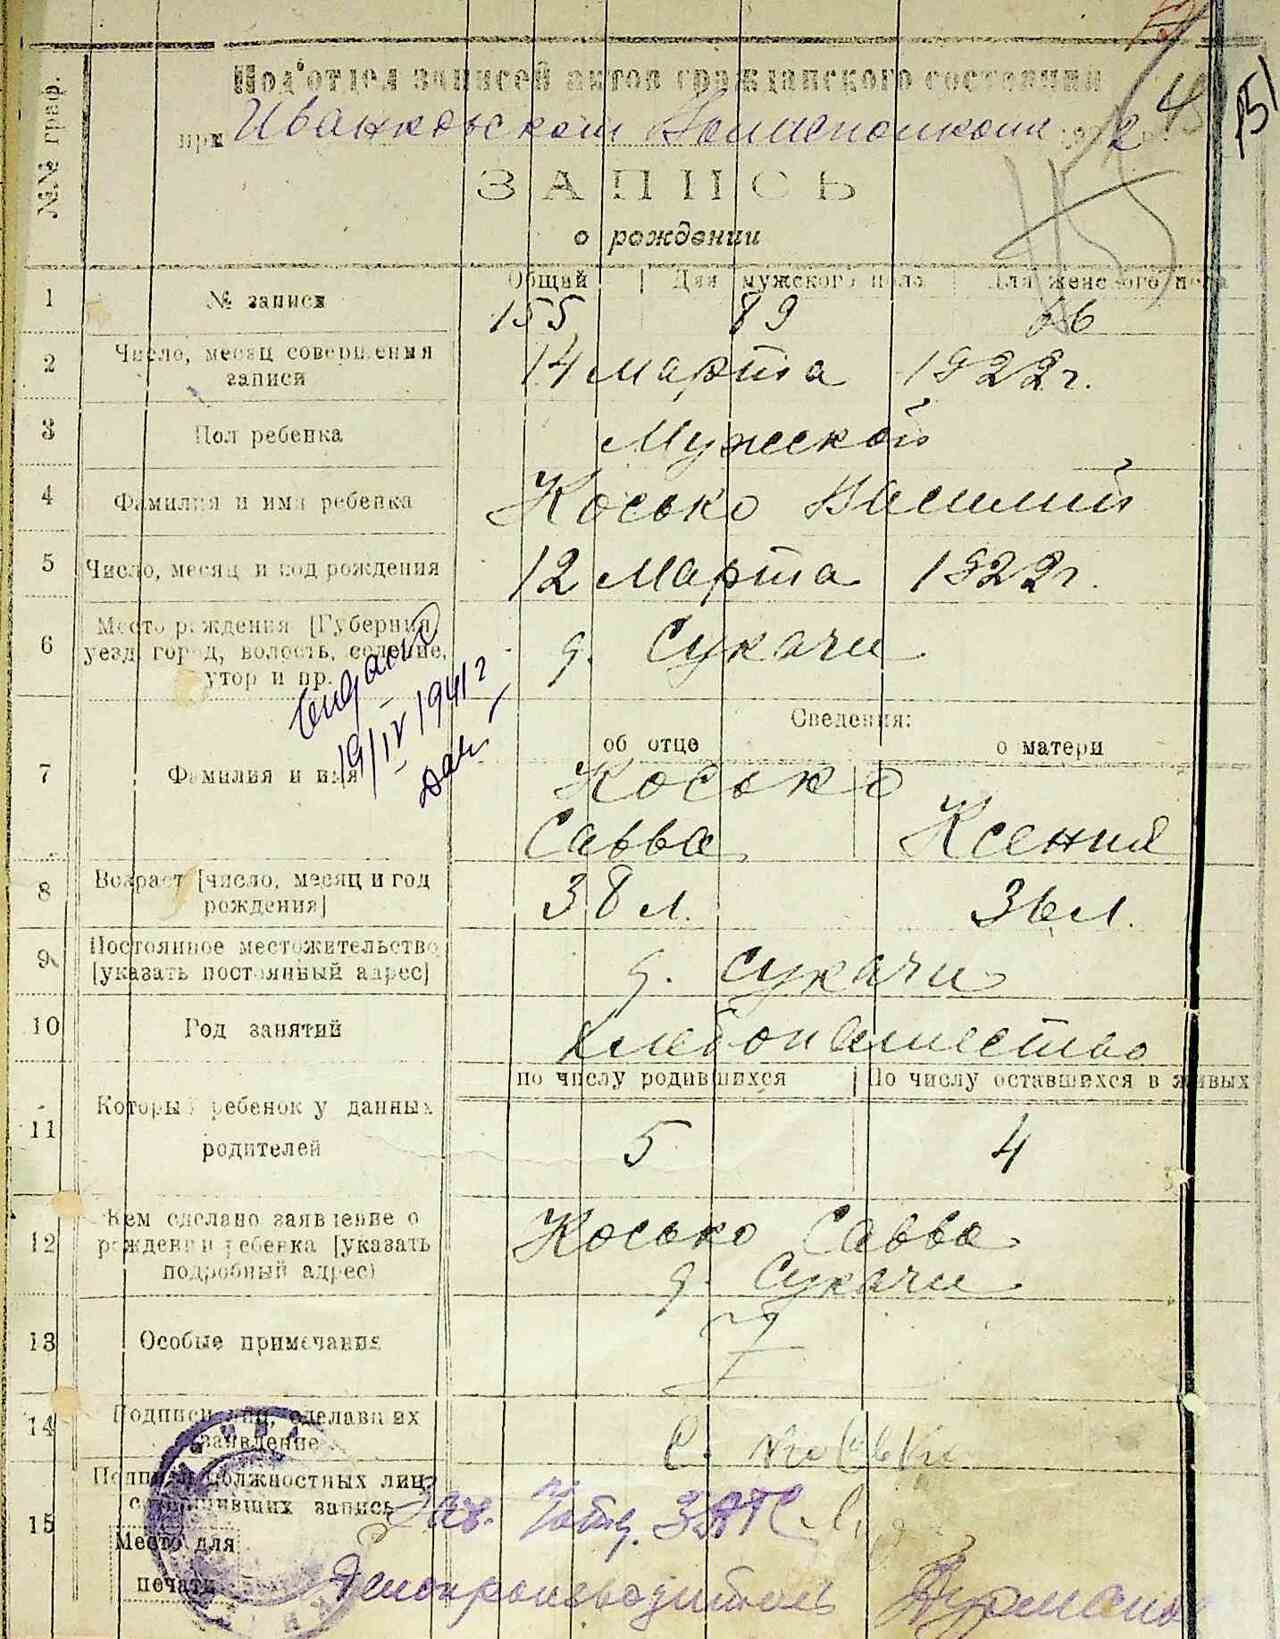 Под'отдел записей актов гражданского состояния
при Иванковском Волисполкоме
45
151
№№ граф.
ЗАПИСЬ
о рождении
Общий | Для мужского пола | Для женского пола
1 № записи 155 89 66
2 Число, месяц совершения записи 14 марта 1922 г.
3 Пол ребенка Мужской
4 Фамилия и имя ребенка Косько Василий
5 Число, месяц и год рождения 12 Марта 1922 г.
6 Место рождения [Губерния,
уезд, город, волость, селение,
хутор и пр. д. Сукачи
19/IV 1941 г
Сведения:
об отце о матери
7 Фамилия и имя Косько
Савва Ксения
8 Возраст [число, месяц и год
рождения] 38 л. 36 л.
9 Постоянное местожительство
[указать постоянный адрес] д. Сукачи
10 Год занятий хлебопашество
по числу родившихся | По числу оставшихся в живых
11 Который ребенок у данных
родителей 5 4
12 Кем сделано заявление о
рождении ребенка [указать
подробный адрес) Косько Савва
д. Сукачи
13 Особые примечания
14 Подписи лиц, сделавших
заявление С. Косько
15 Подписи должностных лиц,
совершивших запись Зав. ЗАГС
Место для
печати Делопроизводитель